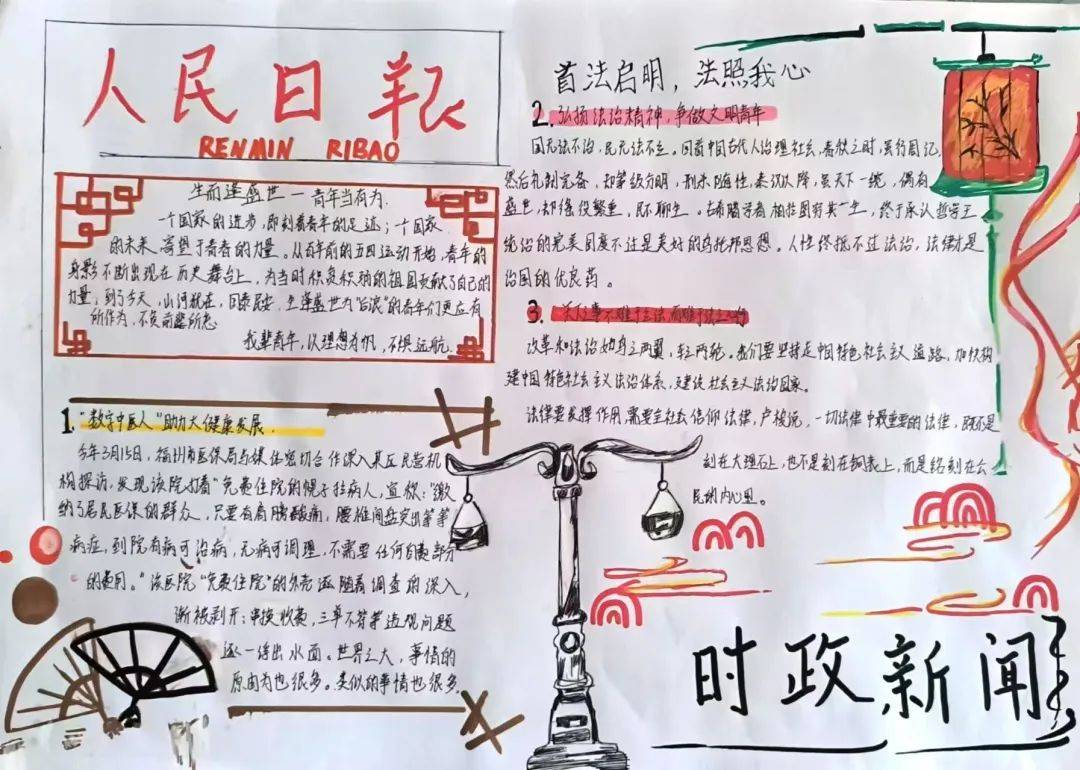 人民日报
RENMIN RIBAO
生而逢盛世—青年当有为.
一个国家的进步,即刻着青年的足迹;一个国家.
的未来、寄望于青春的力量。从百年前的五四运动开始,青年的
身影不断出现在历史舞台上,为当时积贫积弱的祖国贡献了自己的
力量,到了今天,山河犹在,国泰民安,生逢盛世为"后浪"的青年们更应有
所作为,不负前辈所愿.
我辈青年,以理想为帆,不惧远航.
1."数字中医人"助力大健康发展.
今年3月15日,福州市医保局与媒体密切合作深入某区民营机
构探访,发现该院打着"免费住院的幌子拉病人,宣称:"缴
纳了居民医保的群众,只要有肩膀酸痛,腰椎间盘突出等等
病症,到院有病可治病,无病可调理,不需要任何自费部分
的费用。"该医院"免费住院"的外壳逐随着调查的深入,
渐被剥开:串换收费,三单不符等违规问题
逐一浮出水面。世界之大,事情的
原由为也很多。类似的事情也很多
首法启明,法照我心
2.弘扬法治精神,争做文明青年
国无法不治,民无法不立。回首中国古代人治理社会,春秋之时,
然后礼制完备,却等级分明,刑不随性,秦汉以降,虽天下一统,偶有
盛世,却徭役繁重,民不聊生。古希腊学者柏拉图穷其一生,终于承认哲学王
统治的完美国度不过是美好的乌托邦思想。人性终抵不过法治,法律才是
治国的优良药。
3.天下之事不难于立法,而难于法之必行
改革和法治如鸟之两翼,车之两轮。我们要坚持走中国特色社会主义道路,加快构
建中国特色社会主义法治体系,建设社会主义法治国家。
法律要发挥作用,需要全社会信仰法律,卢梭说,一切法律中最重要的法律,既不是
刻在大理石上,也不是刻在铜表上,而是铭刻在公
民的内心里。
时政新闻